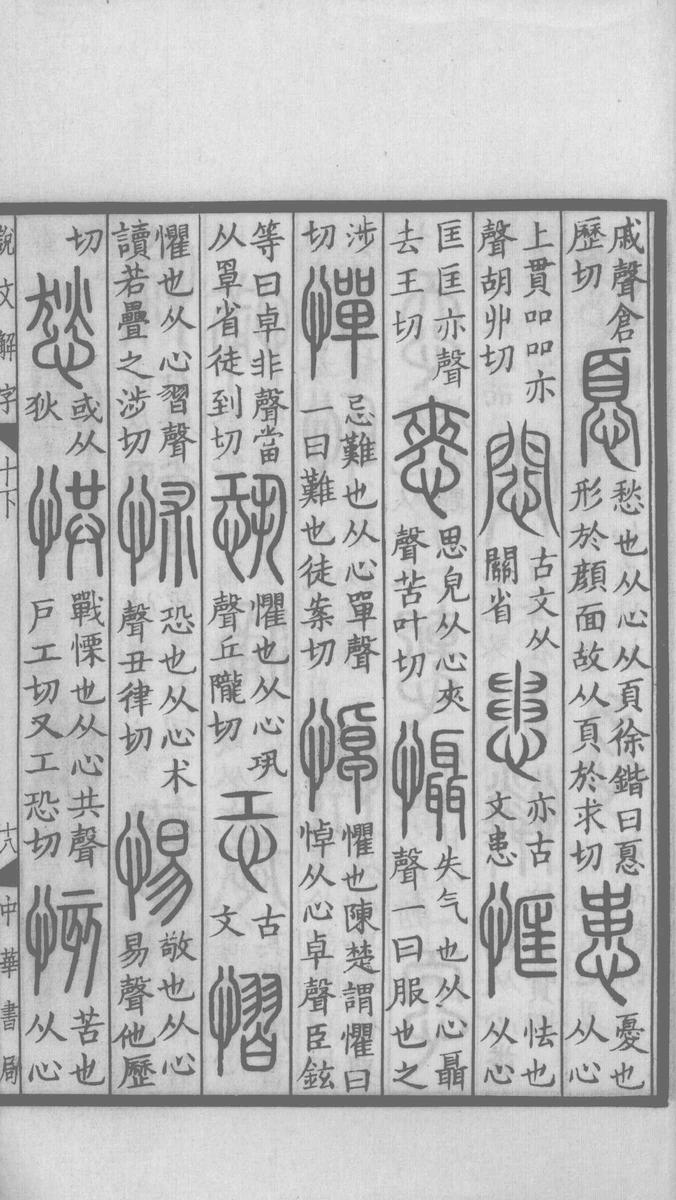 戚聲倉歷切 𢝊 愁也从心从頁徐鍇曰𢝊形於顏面故从頁於求切 患 憂也从心
上貫吅吅亦聲胡丱切 古文从關省 亦古文患 恇 怯也从心
匡匡亦聲去王切 㥦 思皃从心夾聲苦叶切 懾 失气也从心聶聲一曰服也之
涉切 憚 忌難也从心單聲一曰難也徒案切 悼 懼也陳楚謂懼曰悼从心卓聲臣鉉
等曰卓非聲當从罩省徒到切 恐 懼也从心巩聲丘隴切 𢖶 古文 慴
懼也从心習聲讀若疊之涉切 怵 恐也从心术聲丑律切 惕 敬也从心易聲他歷
切 悐 或从狄 㤨 戰慄也从心共聲戶工切又工恐切 㤥 苦也从心
說文解字 十下 十八 中華書局